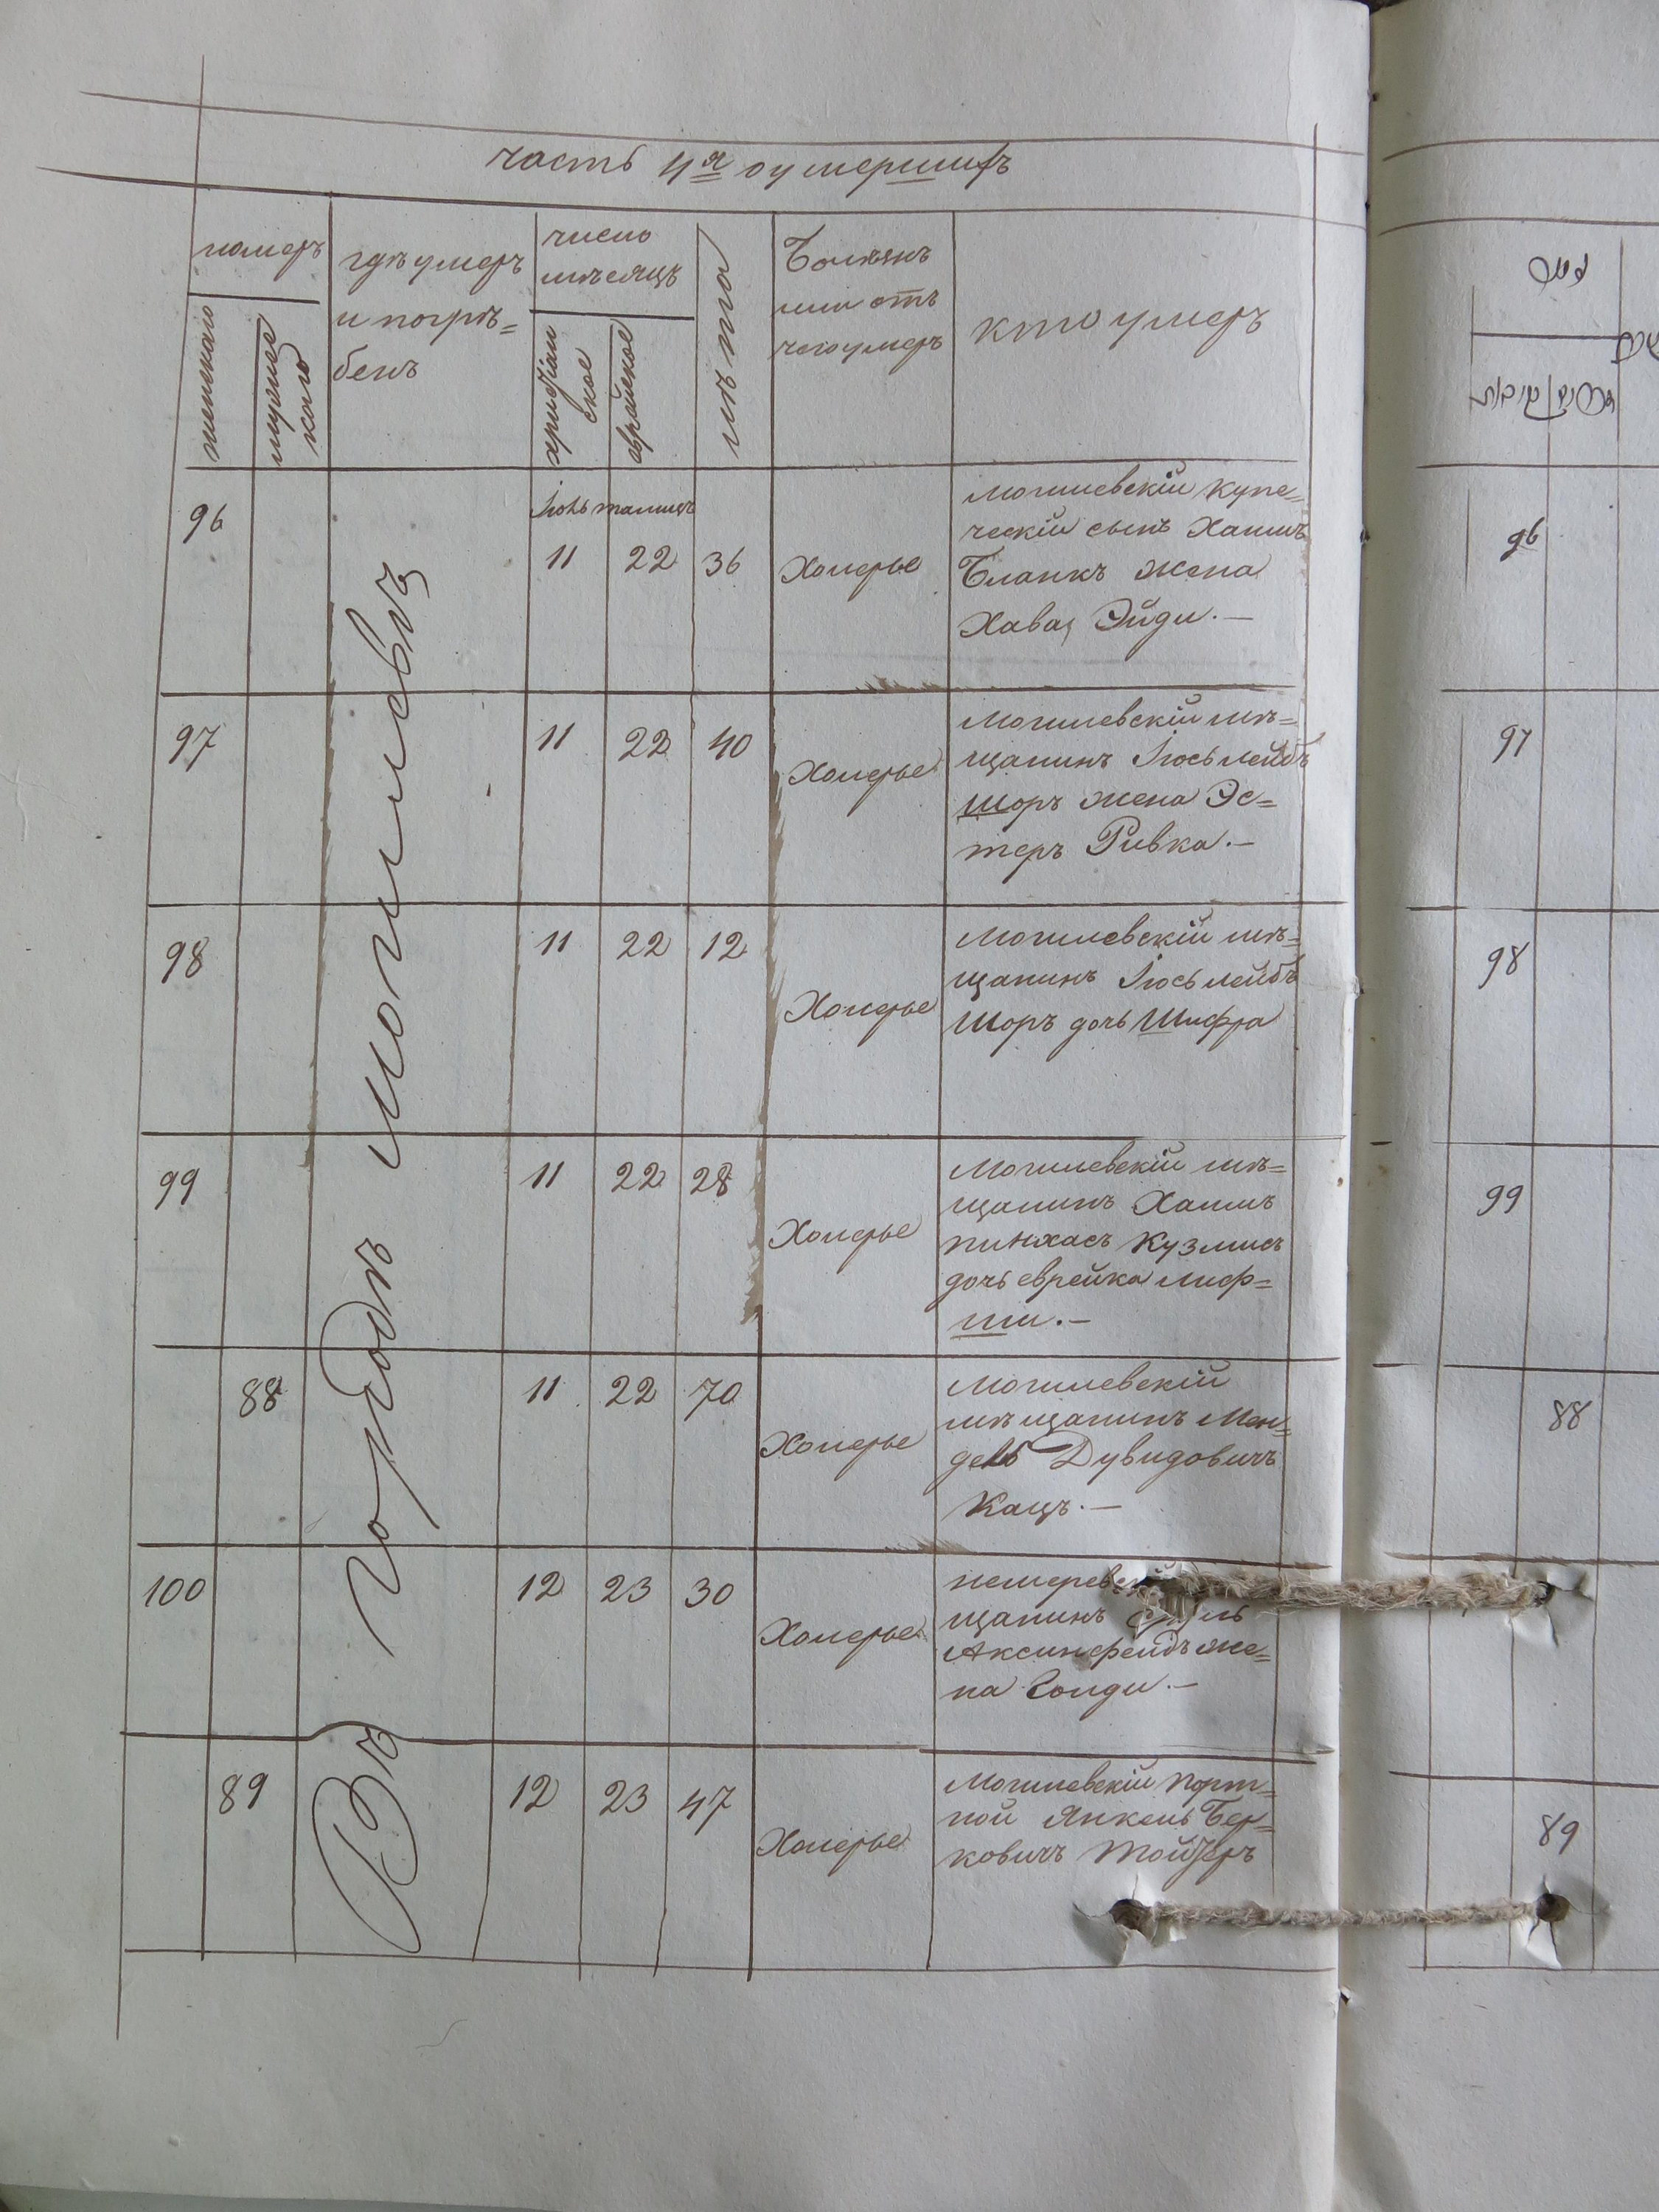 часть 4я о умершихъ
номеръ
женскаго
мужес
каго
гдѣ умеръ
и погрѣ=
бенъ
число
мѣсяцъ
христіан
ское
еврейское
лѣта
Болѣзнь
или отъ
чего умеръ
кто умеръ
Въ городѣ Могилевѣ
Іюль тамизъ
96
11 22 36
Холерые
Могилевскій купе=
ческій сынъ Хаимъ
Бланкъ жена
Хава, Эйди.—
97
11 22 40
Холерые
Могилевскій мѣ=
щанинъ Іосьлейбъ
Шоръ жена Эс=
теръ Ривка.—
98
11 22 12
Холерые
Могилевскій мѣ=
щанинъ Іосьлейбъ
Шоръ дочь Шифра
99
11 22 28
Холерые
Могилевскій мѣ=
щанинъ Хаимъ
Пинхасъ
дочь еврейка
88
11 22 70
Холерые
Могилевскій
мѣщанинъ Мен=
дель Дувидовичъ
Кацъ.—
100
12 23 30
Холерые
щанинъ
Аксинфелдъ же=
на Голди.—
89
12 23 47
Холерые
Могилевскій порт=
ной Янкель Бер=
ковичъ
96
97
98
99
88
89